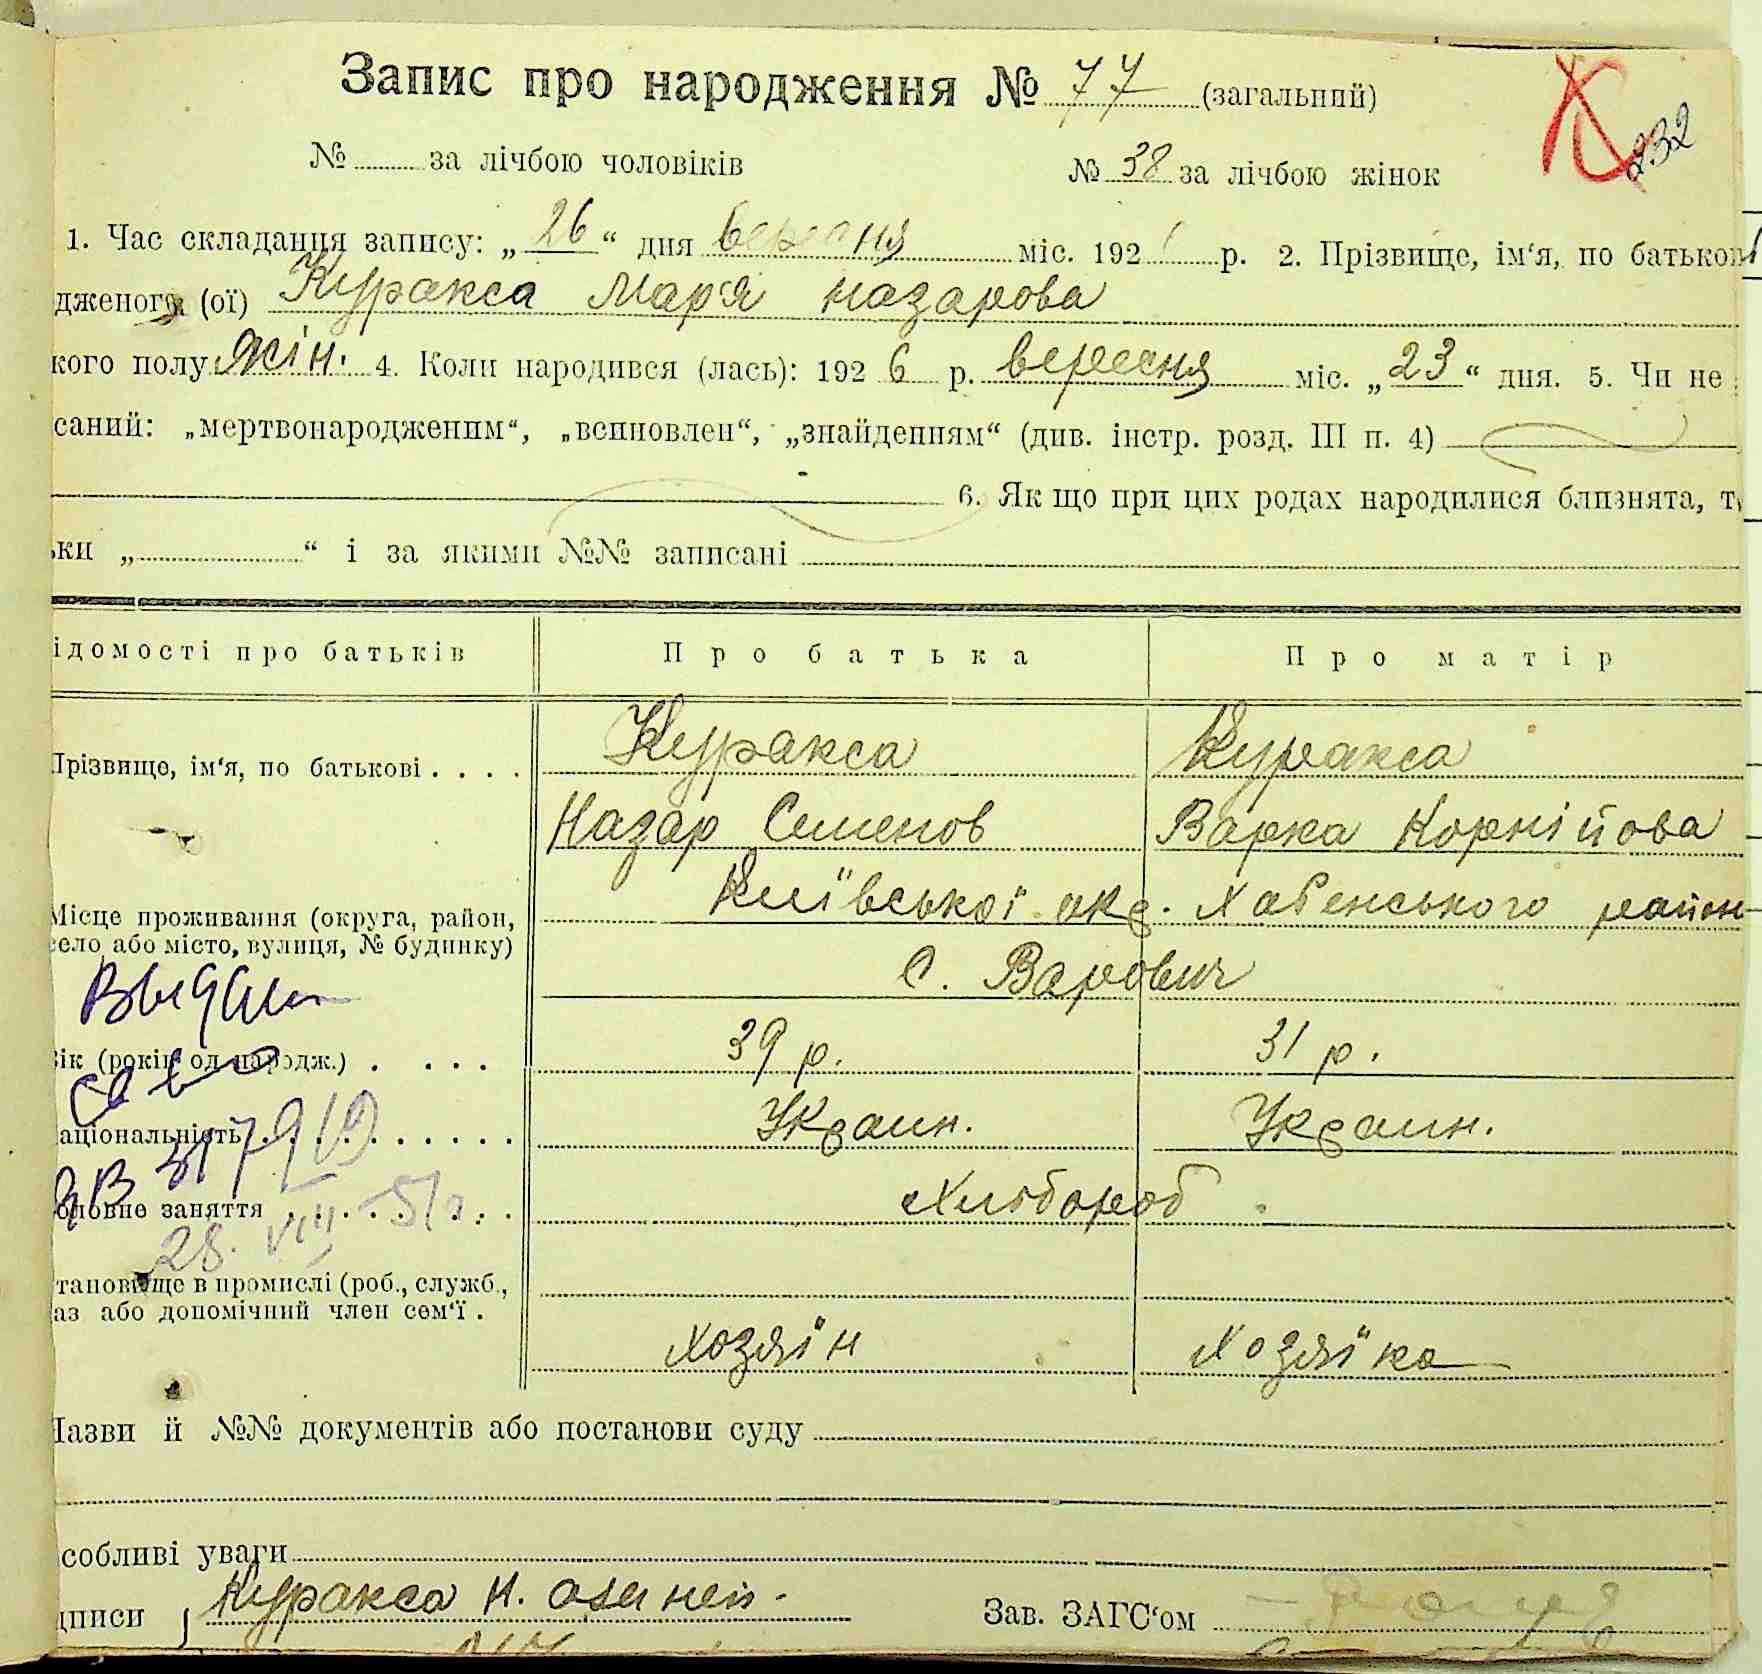 Запис про народження № 77 (загальний)
232
№ за лічбою чоловіків № 38 за лічбою жінок
1. Час складання запису: „26“ дня вересня міс. 192 р. 2. Прізвище, ім‘я, по батькові
дженого (ої) Куракса Мар'я Назарова
кого полу жін. 4. Коли народився (лась): 1926 р. вересня міс. „23“ дня. 5. Чи не
саний: „мертвонародженим“, „всиновлен“, „знайденням“ (див. інстр. розд. III п. 4)
6. Як що при цих родах народилися близнята, т
ьки „ “ і за якими №№ записані
ідомості про батьків Про батька Про матір
Прізвище, ім‘я, по батькові . . . . Куракса Куракса
Назар Семенов Варка Корнійова
Місце проживання (округа, район, Київської окр. Хабенського район
село або місто, вулиця, № будинку)
с. Варович
Вік (років од народж.) . . . . 39 р. 31 р.
аціональність . . . . . . . . . Украин. Украин.
28. VIII–51г.
оловне заняття . . . . . . . Хлібороб
тановище в промислі (роб., служб.,
аз або допомічний член сем‘ї .
Хозяїн Хозяїка
Назви й №№ документів або постанови суду
собливі уваги
дписи Куракса Н. Зав. ЗАГС‘ом